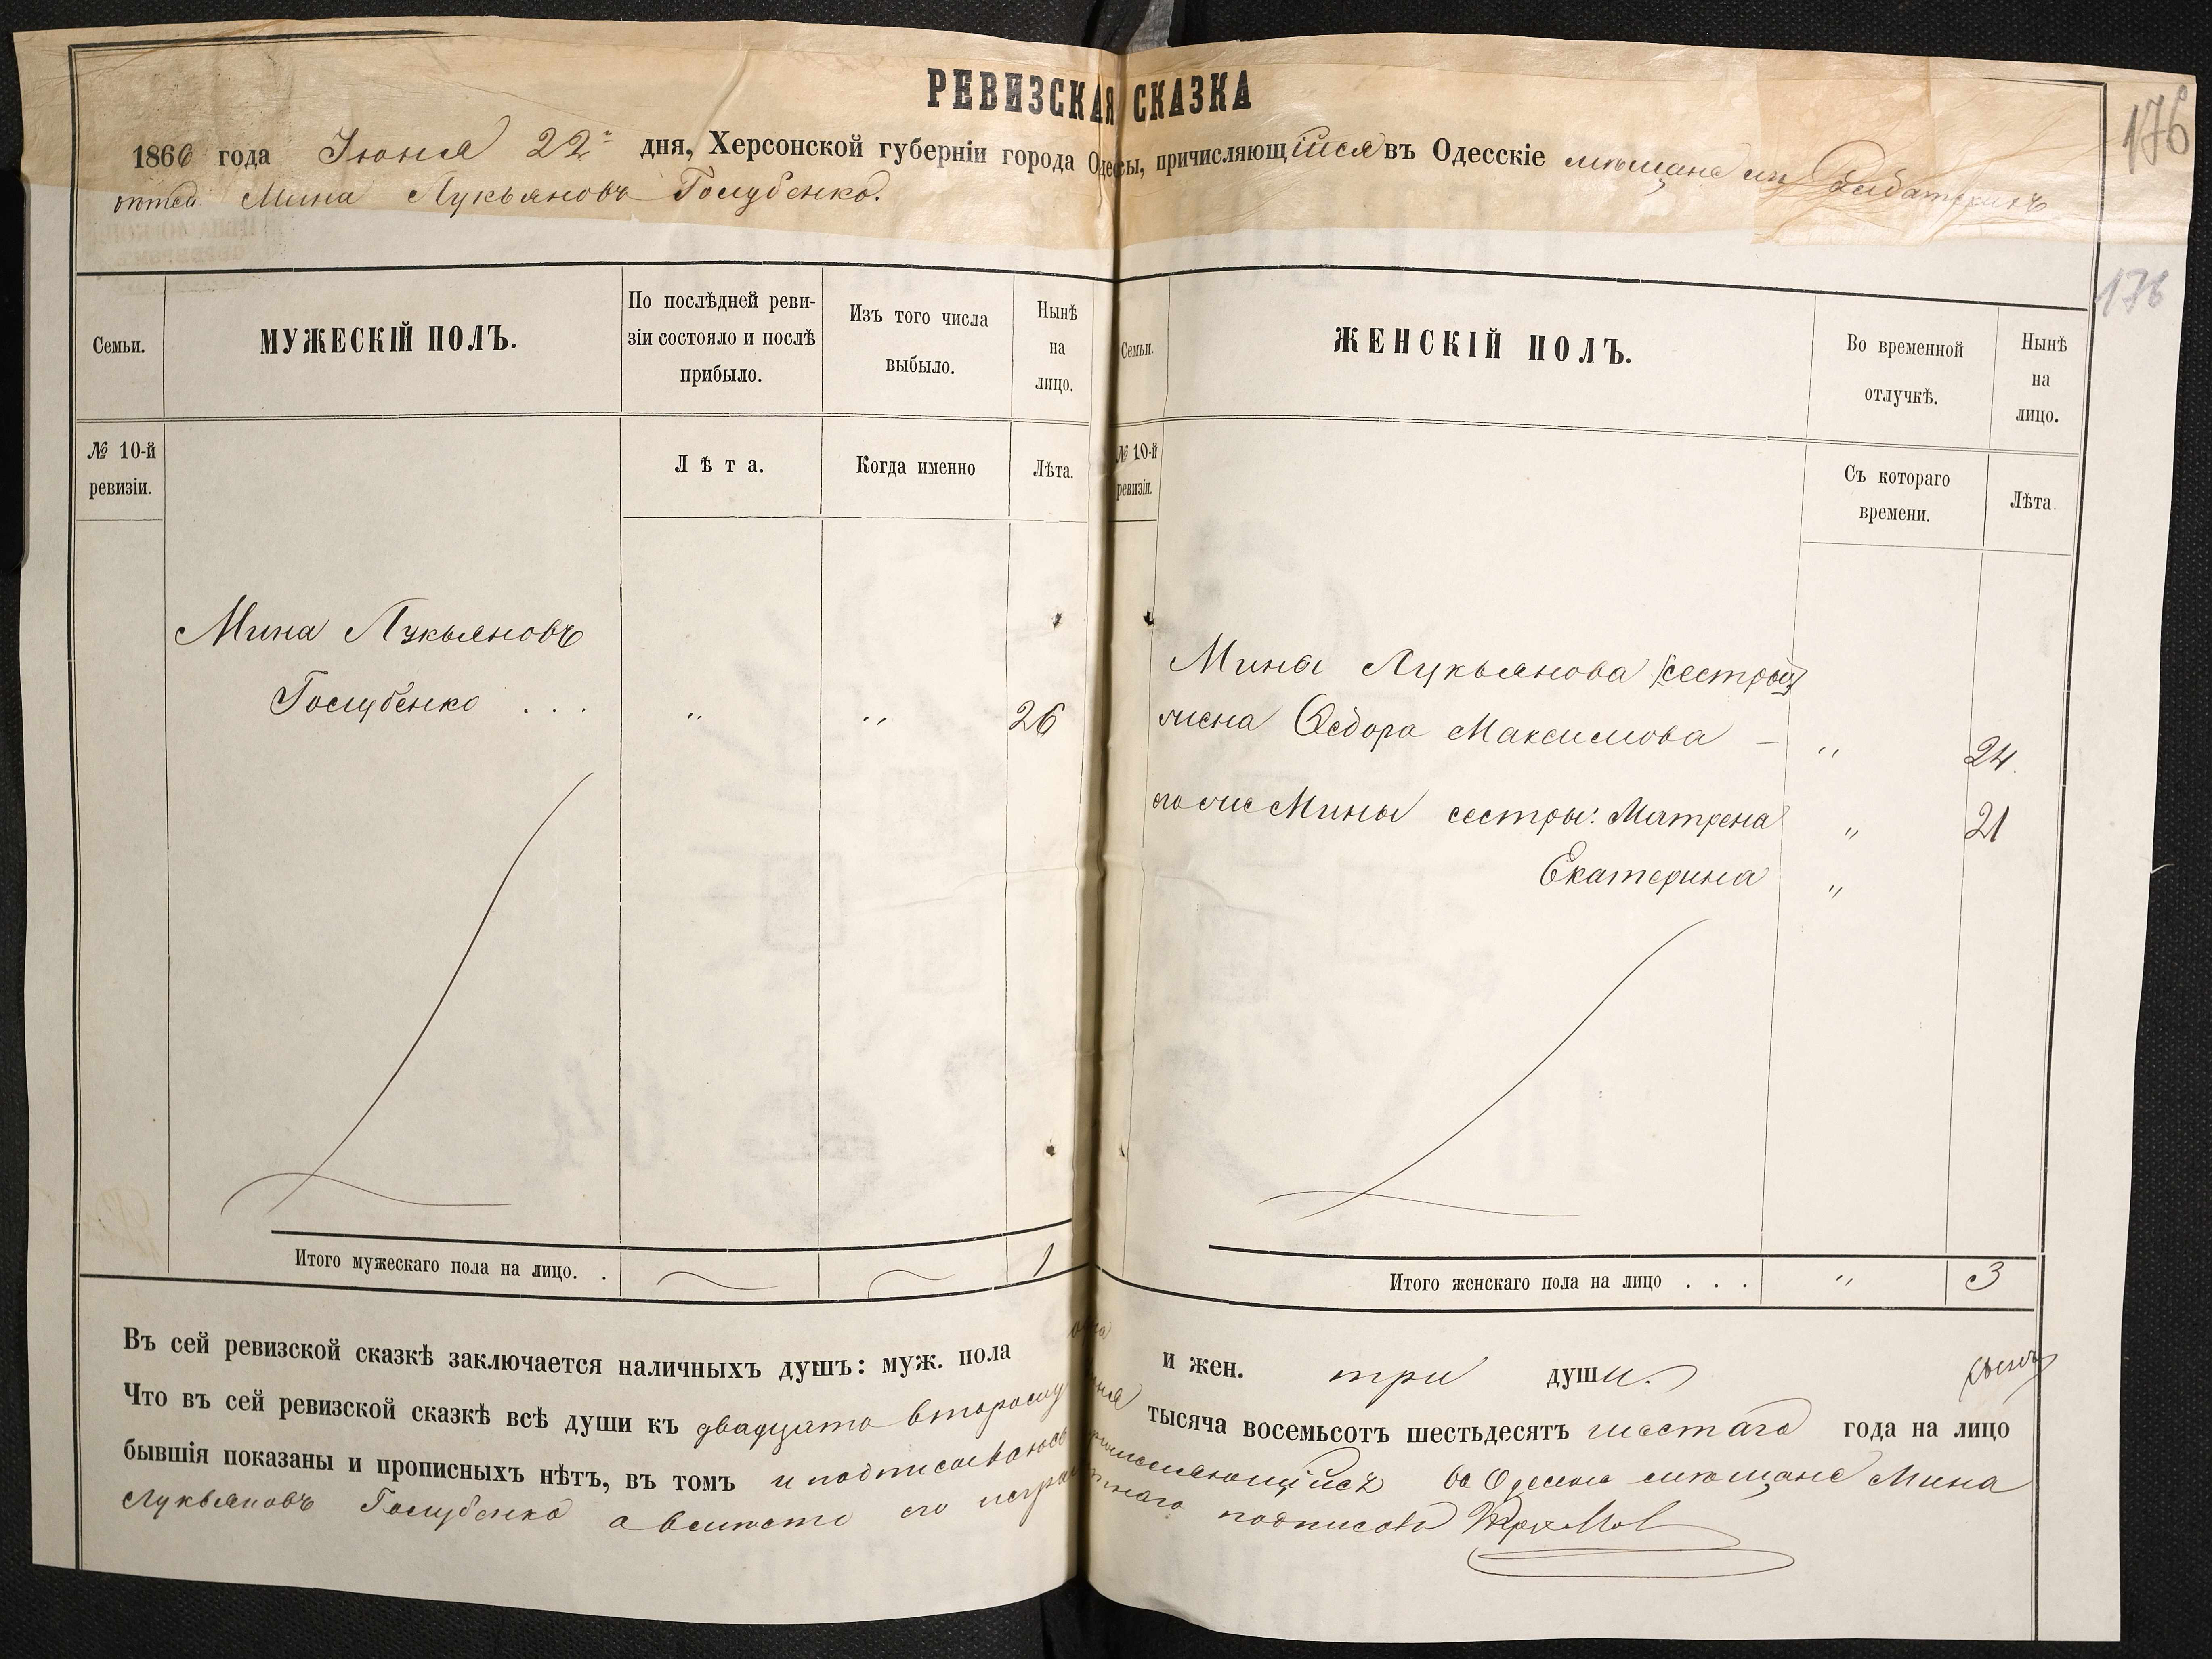 РЕВИЗСКАЯ СКАЗКА
1866 года Іюня 22 дня, Херсонской губерніи города Одессы, причисляющійся въ Одесскіе мѣщане изъ
Мина Лукьяновъ Голубенко.
176
176
Семьи.
МУЖЕСКІЙ ПОЛЪ.
По послѣдней реви-
зіи состояло и послѣ
прибыло.
Изъ того числа
выбыло.
Нынѣ
на
лицо.
Семьи.
ЖЕНСКІЙ ПОЛЪ.
Во временной
отлучкѣ.
Нынѣ
на
лицо.
№ 10-й
ревизіи.
Лѣта.
Когда именно
Лѣта.
№ 10-й
ревизіи.
Съ котораго
времени.
Лѣта.
Мина Лукьяновъ
Голубенко . . . " " 26
Мины Лукьянова
жена Ѳедора Максимова — " 24.
его же Мины сестры: Матрена " 21
Екатерина "
Итого мужескаго пола на лицо. . 1
Итого женскаго пола на лицо . . . " 3
Въ сей ревизской сказкѣ заключается наличныхъ душъ: муж. пола одна и жен. три души.
Что въ сей ревизской сказкѣ всѣ души къ двадцать второму Іюня тысяча восемьсотъ шестьдесятъ шестаго года на лицо
бывшія показаны и прописныхъ нѣтъ, въ томъ и подписываюсь причисляющійся въ Одесскіе мѣщане Мина
Лукьяновъ Голубенко а вмѣсто его неграмотнаго подписалъ